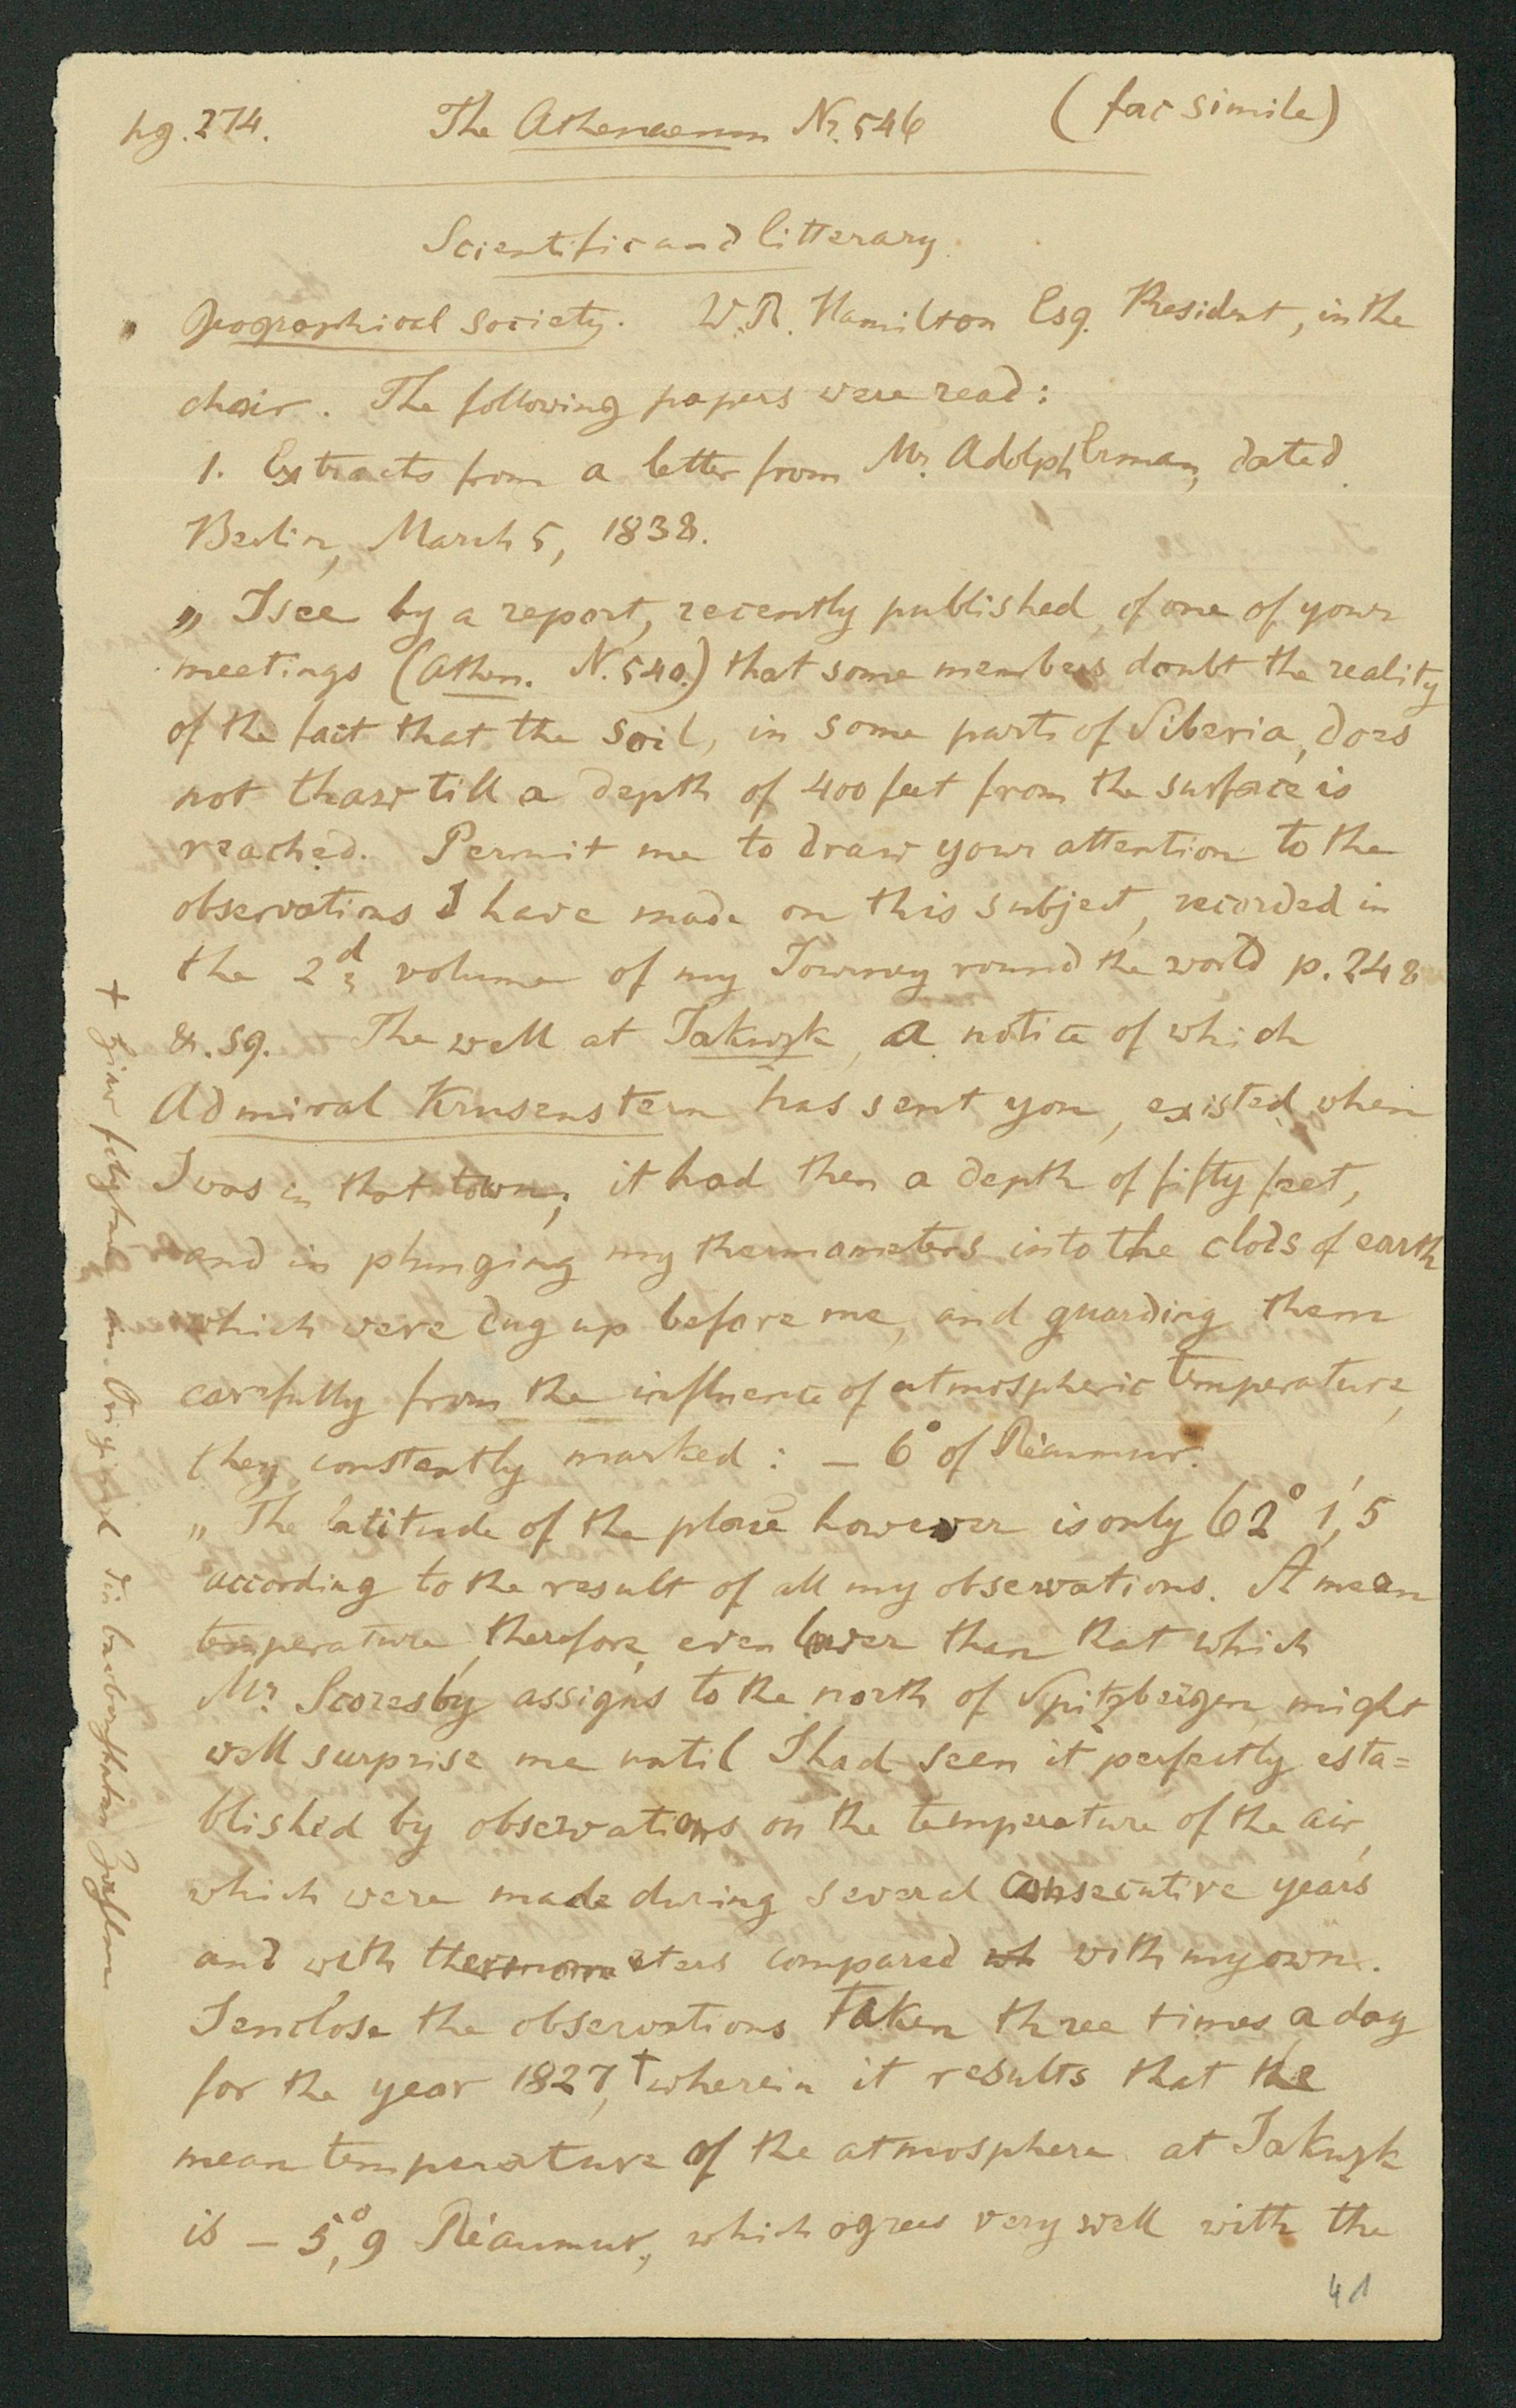 pg. 274. The Athenaeum Nr. 546 (facsimile)
Scientific and litterary.
Geographical society. W. R. Hamilton Esq. President, in the
chair. The following papers were read:
1. Extracts from a letter from Mr. Adolph Erman, dated
Berlin, March 5, 1838.
„ I see by a report, recently published, of one of your
meetings (Athen. N. 540.) that some members doubt the reality
of the fact that the soil, in some parts of Siberia, does
not thaw till a depth of 400 feet from the surface is
reached. Permit me to draw your attention to the
observations I have made on this subject, recorded in
the 2d volume of my Journey round the world p. 248
&. sq. The well at Jakuzk, a notice of which
Admiral Krusenstern has sent you, existed when
I was in that town; it had then a depth of fifty feet,
and in plunging my thermometers into the clods of earth
which were dug up before me, and guarding them
carefully from the influence of atmospheric temperature,
they constently marked: – 6° of Réaumur.
„ The latitude of the place however is only 62° 1,'5
according to the result of all my observations. A mean
temperature, therefore, even lower than that which
Mr. Scoresby assigns to the north of Spitzbergen, might
well surprise me until I had seen it perfectly esta=
blished by observations on the temperature of the air,
which were made during several consecutive years
and with thermometers compared wh with my own.
I enclose the observations taken three times a day
for the year 1827,† wherein it results that the
mean temperature of the atmosphere at Jakuzk
is – 5,°9 Réaumur, which agrees very well with the
41
+ hier folgten im Original die beobachteten Zahlen